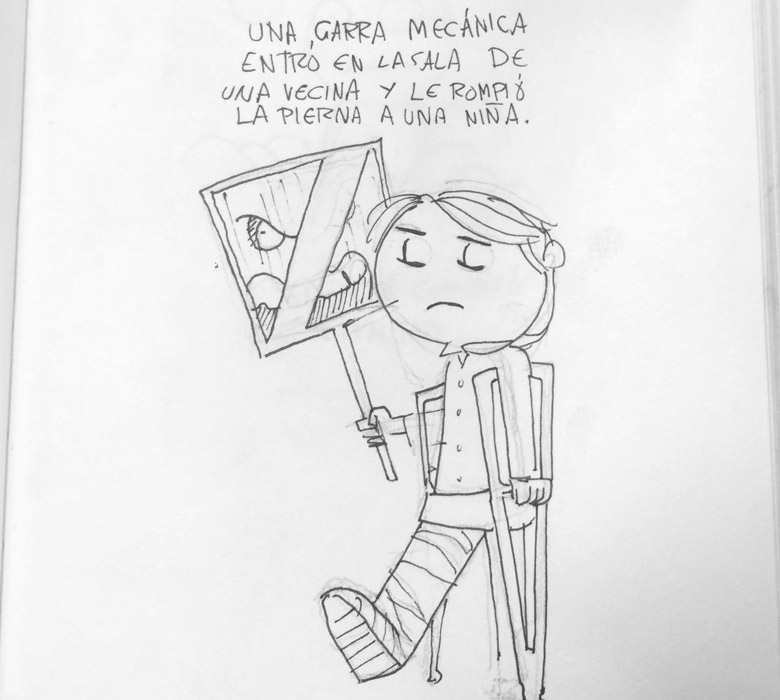 UNA GARRA MECÁNICA
ENTRÓ EN LA SALA DE
UNA VECINA Y LE ROMPIÓ
LA PIERNA A UNA NIÑA.